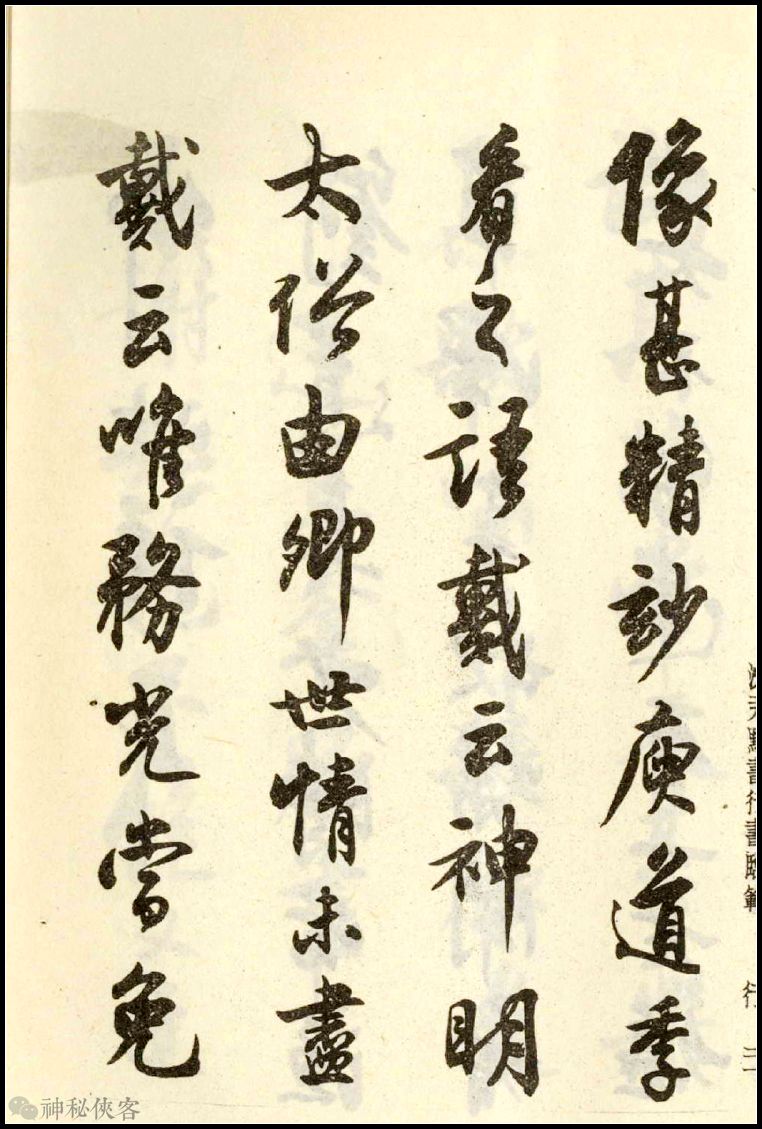 像甚精妙庾道季
看之語戴云神明
太俗由卿世情未盡
戴云唯務光當免
沈尹默書行書臨範 行 三
神秘俠客